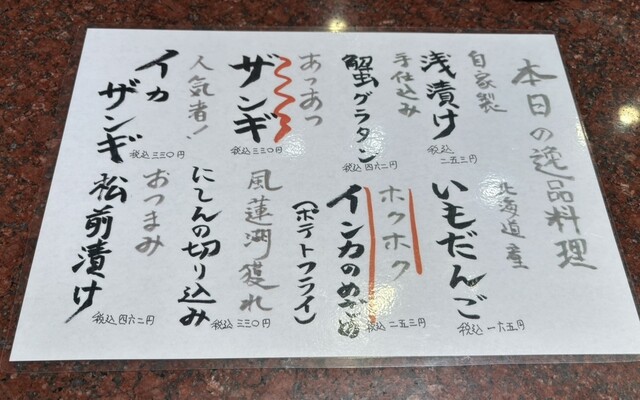 本日の逸品料理
自家製
浅漬け
税込 二五三円
手仕込み
蟹グラタン
税込 四六二円
あつあつ
ザンギ
税込 三三〇円
人気者!
イカザンギ
税込 三三〇円
北海道産
いもだんご
税込 一六五円
ホクホク
インカのめざめ
(ポテトフライ)
税込 二五三円
風蓮湖獲れ
にしんの切り込み
税込 三三〇円
おつまみ
松前漬け
税込 四六二円